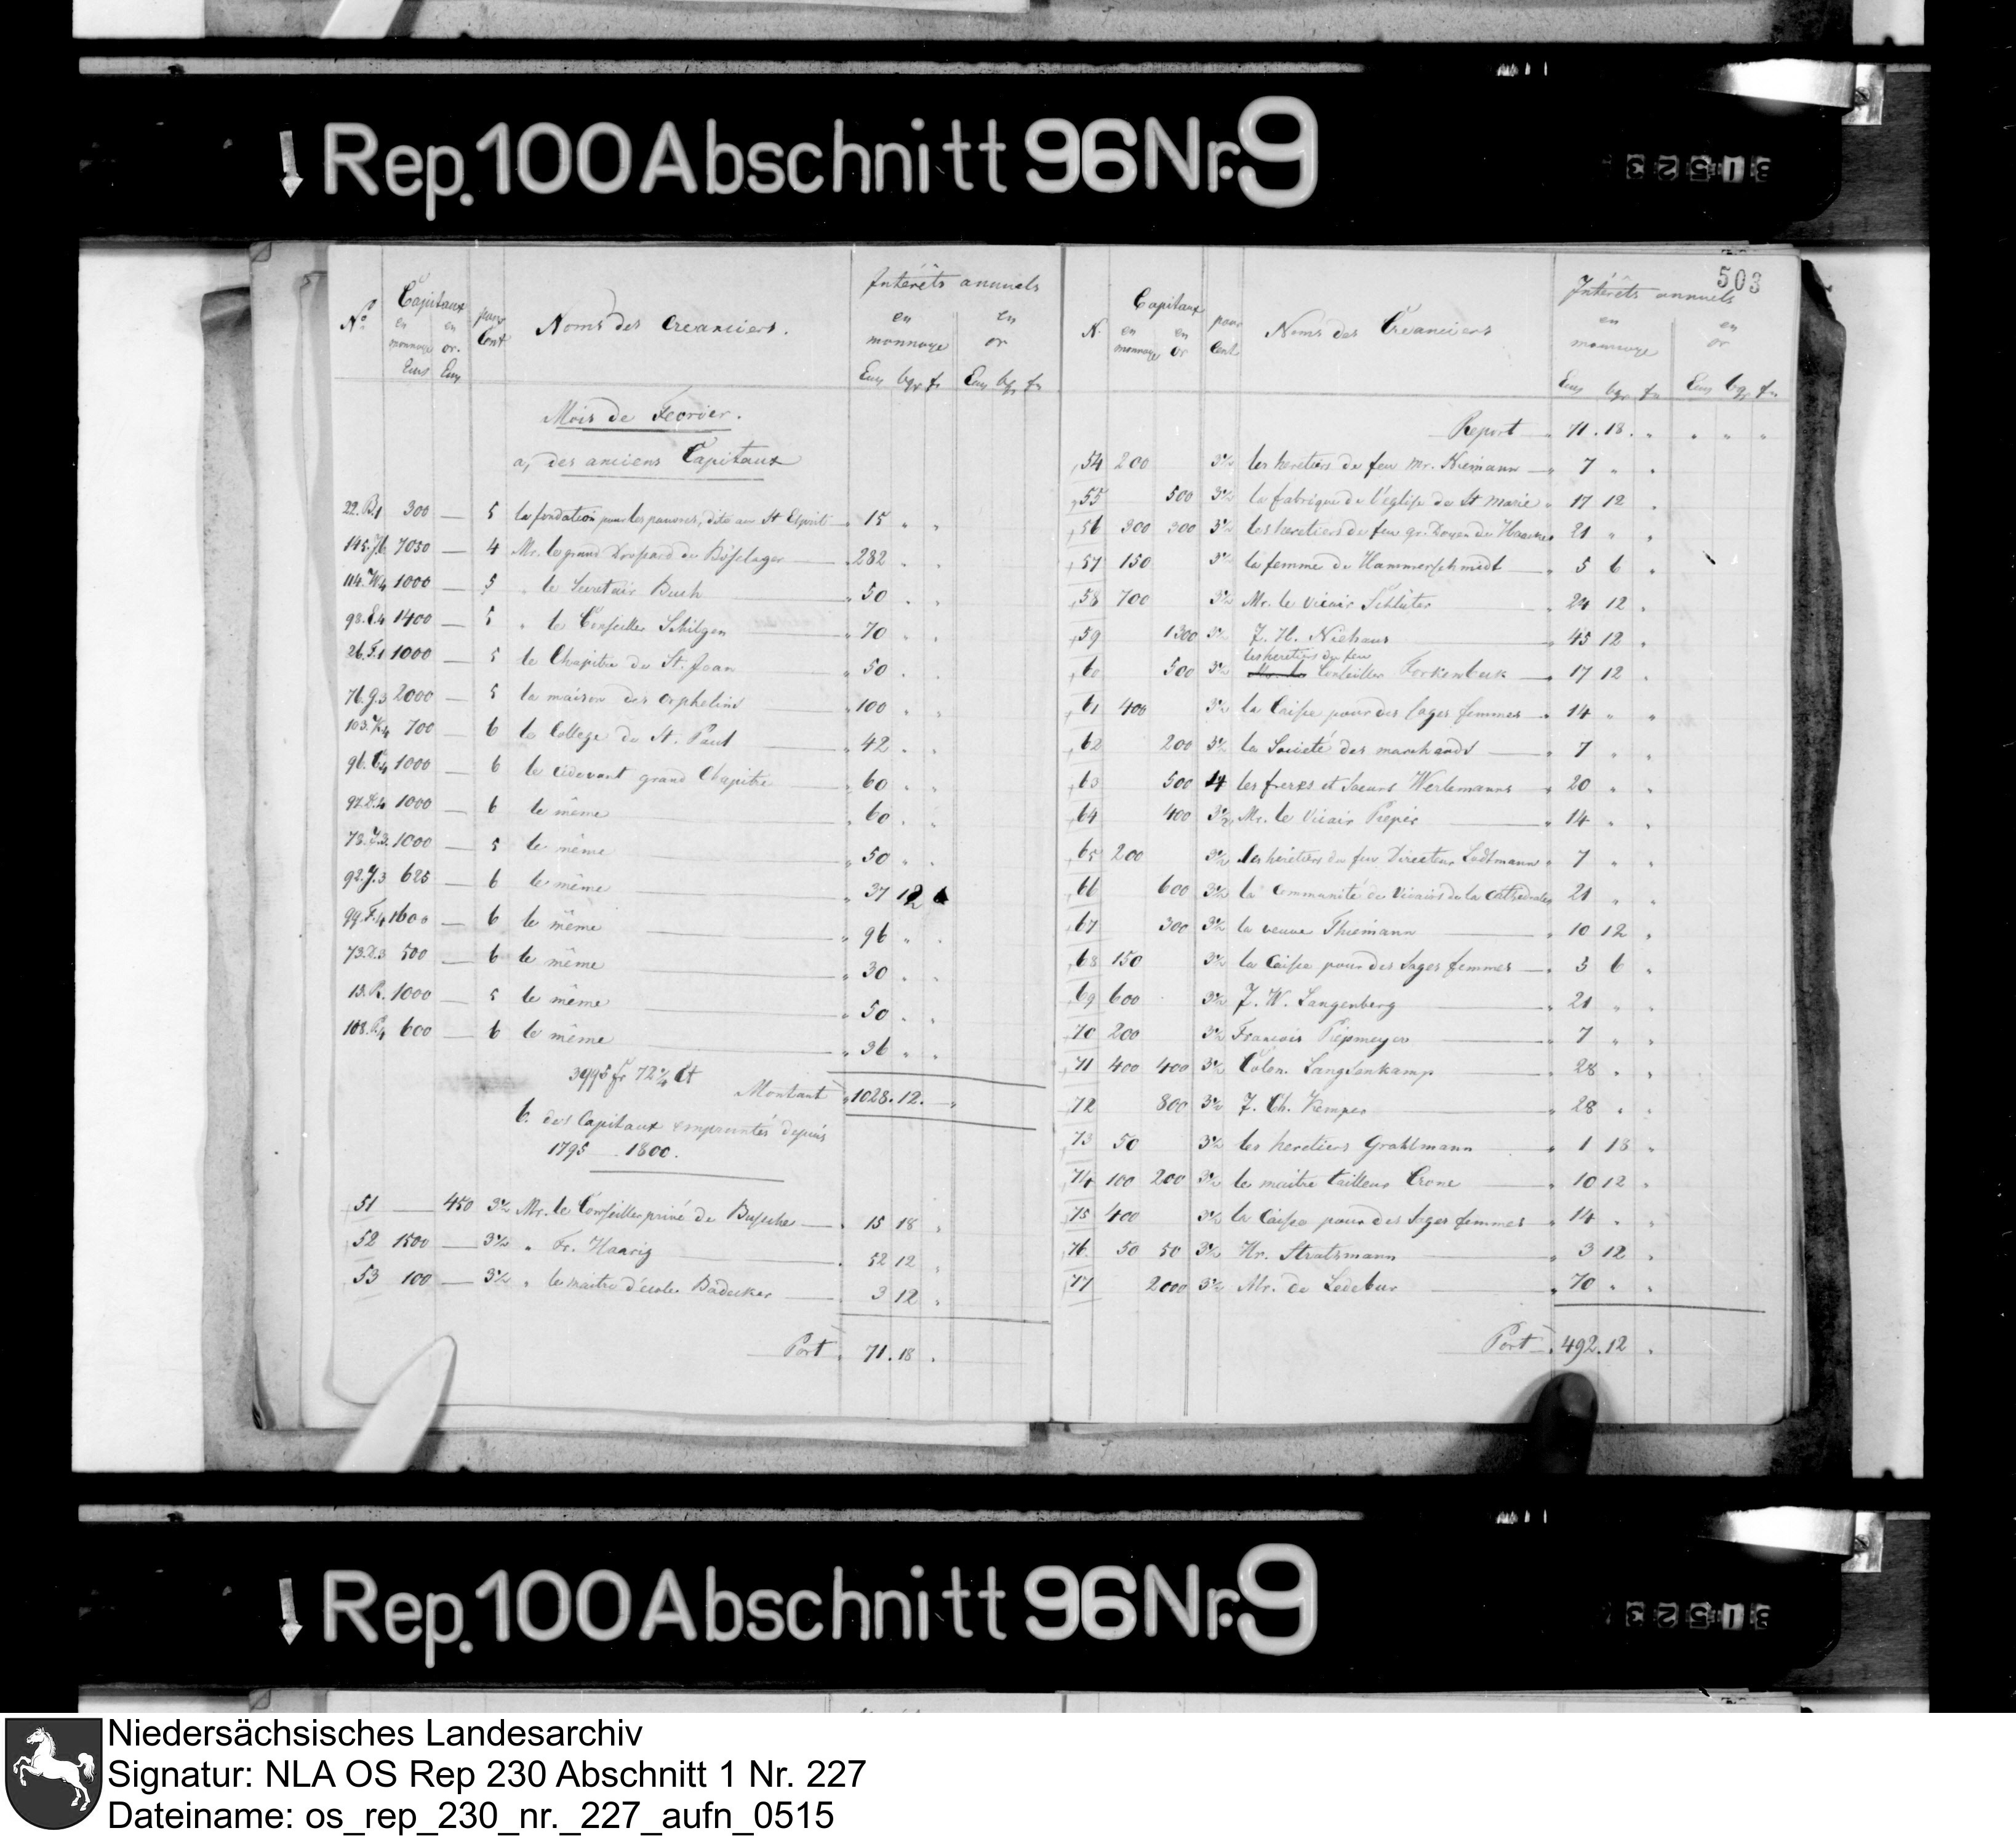 Rep. 100 Abschnitt 96 Nr. 9
31523
No Capitaux en monnaye en or. pour Cent Noms des Creanciers. Intérêts annuels en monnaye en or
Mois de Fevrier.
a, des anciens Capitaux
22. B.1 300 — 5 la fondation pour les pauvres, dite au St Esprit — 15 " "
145. 7050 — 4 Mr. le grand Drossard de Böselager — 282 " "
114. 1000 — 5 " le Secretair Buch — 50 " "
98. 1400 — 5 " le Conseiller Schilgen — 70 " "
26. 1000 — 5 le Chapitre de St. Jean — 50 " "
76. 2000 — 5 la maison des orphelins — 100 " "
103. 700 — 6 le College de St. Paul — 42 " "
96. 1000 — 6 le cidevant grand Chapitre — 60 " "
97. 1000 — 6 le même — 60 " "
78. 1000 — 5 le même — 50 " "
92. 625 — 6 le même — 37 12
99. F.4 1600 — 6 le même — 96 " "
73. 500 — 6 le même — 30 " "
13. 1000 — 5 le même — 50 " "
108. 600 — 6 le même — 36 " "
3995 fr 72 Ct Montant " 1028. 12. "
b. des Capitaux empruntés depuis
1795 1800.
51 — 450 3½ Mr. le Conseiller privé de Busche — 15 18 "
52 1500 — 3½ " Fr. Haarig — 52 12 "
53 100 — 3½ " le maitre d'école Badecker — 3 12 "
Port. 71. 18.
503
N. Capitaux en monnaye en or pour Cent Noms des Creanciers Intérêts annuels en monnaye en or
Report 71. 18. " " " "
54 200 3½ les heretiers de feu Mr. Niemann — 7 " "
55 500 3½ la fabrique de l'église de St Marie 17 12 "
56 300 300 3½ les heretiers de feu gr. Doyen de 21 " "
57 150 3½ la femme de Hammerschmidt — 5 6 "
58 700 3½ Mr. le Vicair Schlüter — 24 12 "
59 1300 3½ J. H. Niehaus — 45 12 "
les heretiers de feu
60 500 3½ Mr. le Conseiller Forkenbeck — 17 12 "
61 400 3½ la Caisse pour des sages femmes — 14 " "
62 200 3½ la Societé des marchands — 7 " "
63 500 4 les freres et soeurs Werlemanns 20 " "
64 400 3½ Mr. le Vicair Pieper — 14 " "
65 200 3½ les heretiers de feu Directeur Lodtmann 7 " "
66 600 3½ la Communité de Vicairs de la Cathedrale 21 " "
67 300 3½ la veuve Thiemann — 10 12 "
68 150 3½ la Caisse pour des Sages femmes — 5 6 "
69 600 3½ J. W. Langenberg — 21 " "
70 200 3½ François Piepmeyer — 7 " "
71 400 400 3½ Colon. Langenkamp — 28 " "
72 800 3½ J. Ch. Kemper — 28 " "
73 50 3½ les heretiers Grahlmann — 1 18 "
74 100 200 3½ le maitre tailleur Crone — 10 12 "
75 400 3½ la Caisse pour des Sages femmes 14 " "
76 50 50 3½ Hr. Stratsmann — 3 12 "
77 2000 3½ Mr. de Ledebur — 70 " "
Port. 492. 12 "
Rep. 100 Abschnitt 96 Nr. 9
31523
Niedersächsisches Landesarchiv
Signatur: NLA OS Rep 230 Abschnitt 1 Nr. 227
Dateiname: os_rep_230_nr._227_aufn_0515